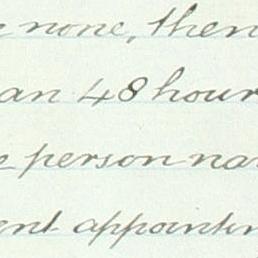 none, then
an 48 hour
person na
ent appointm